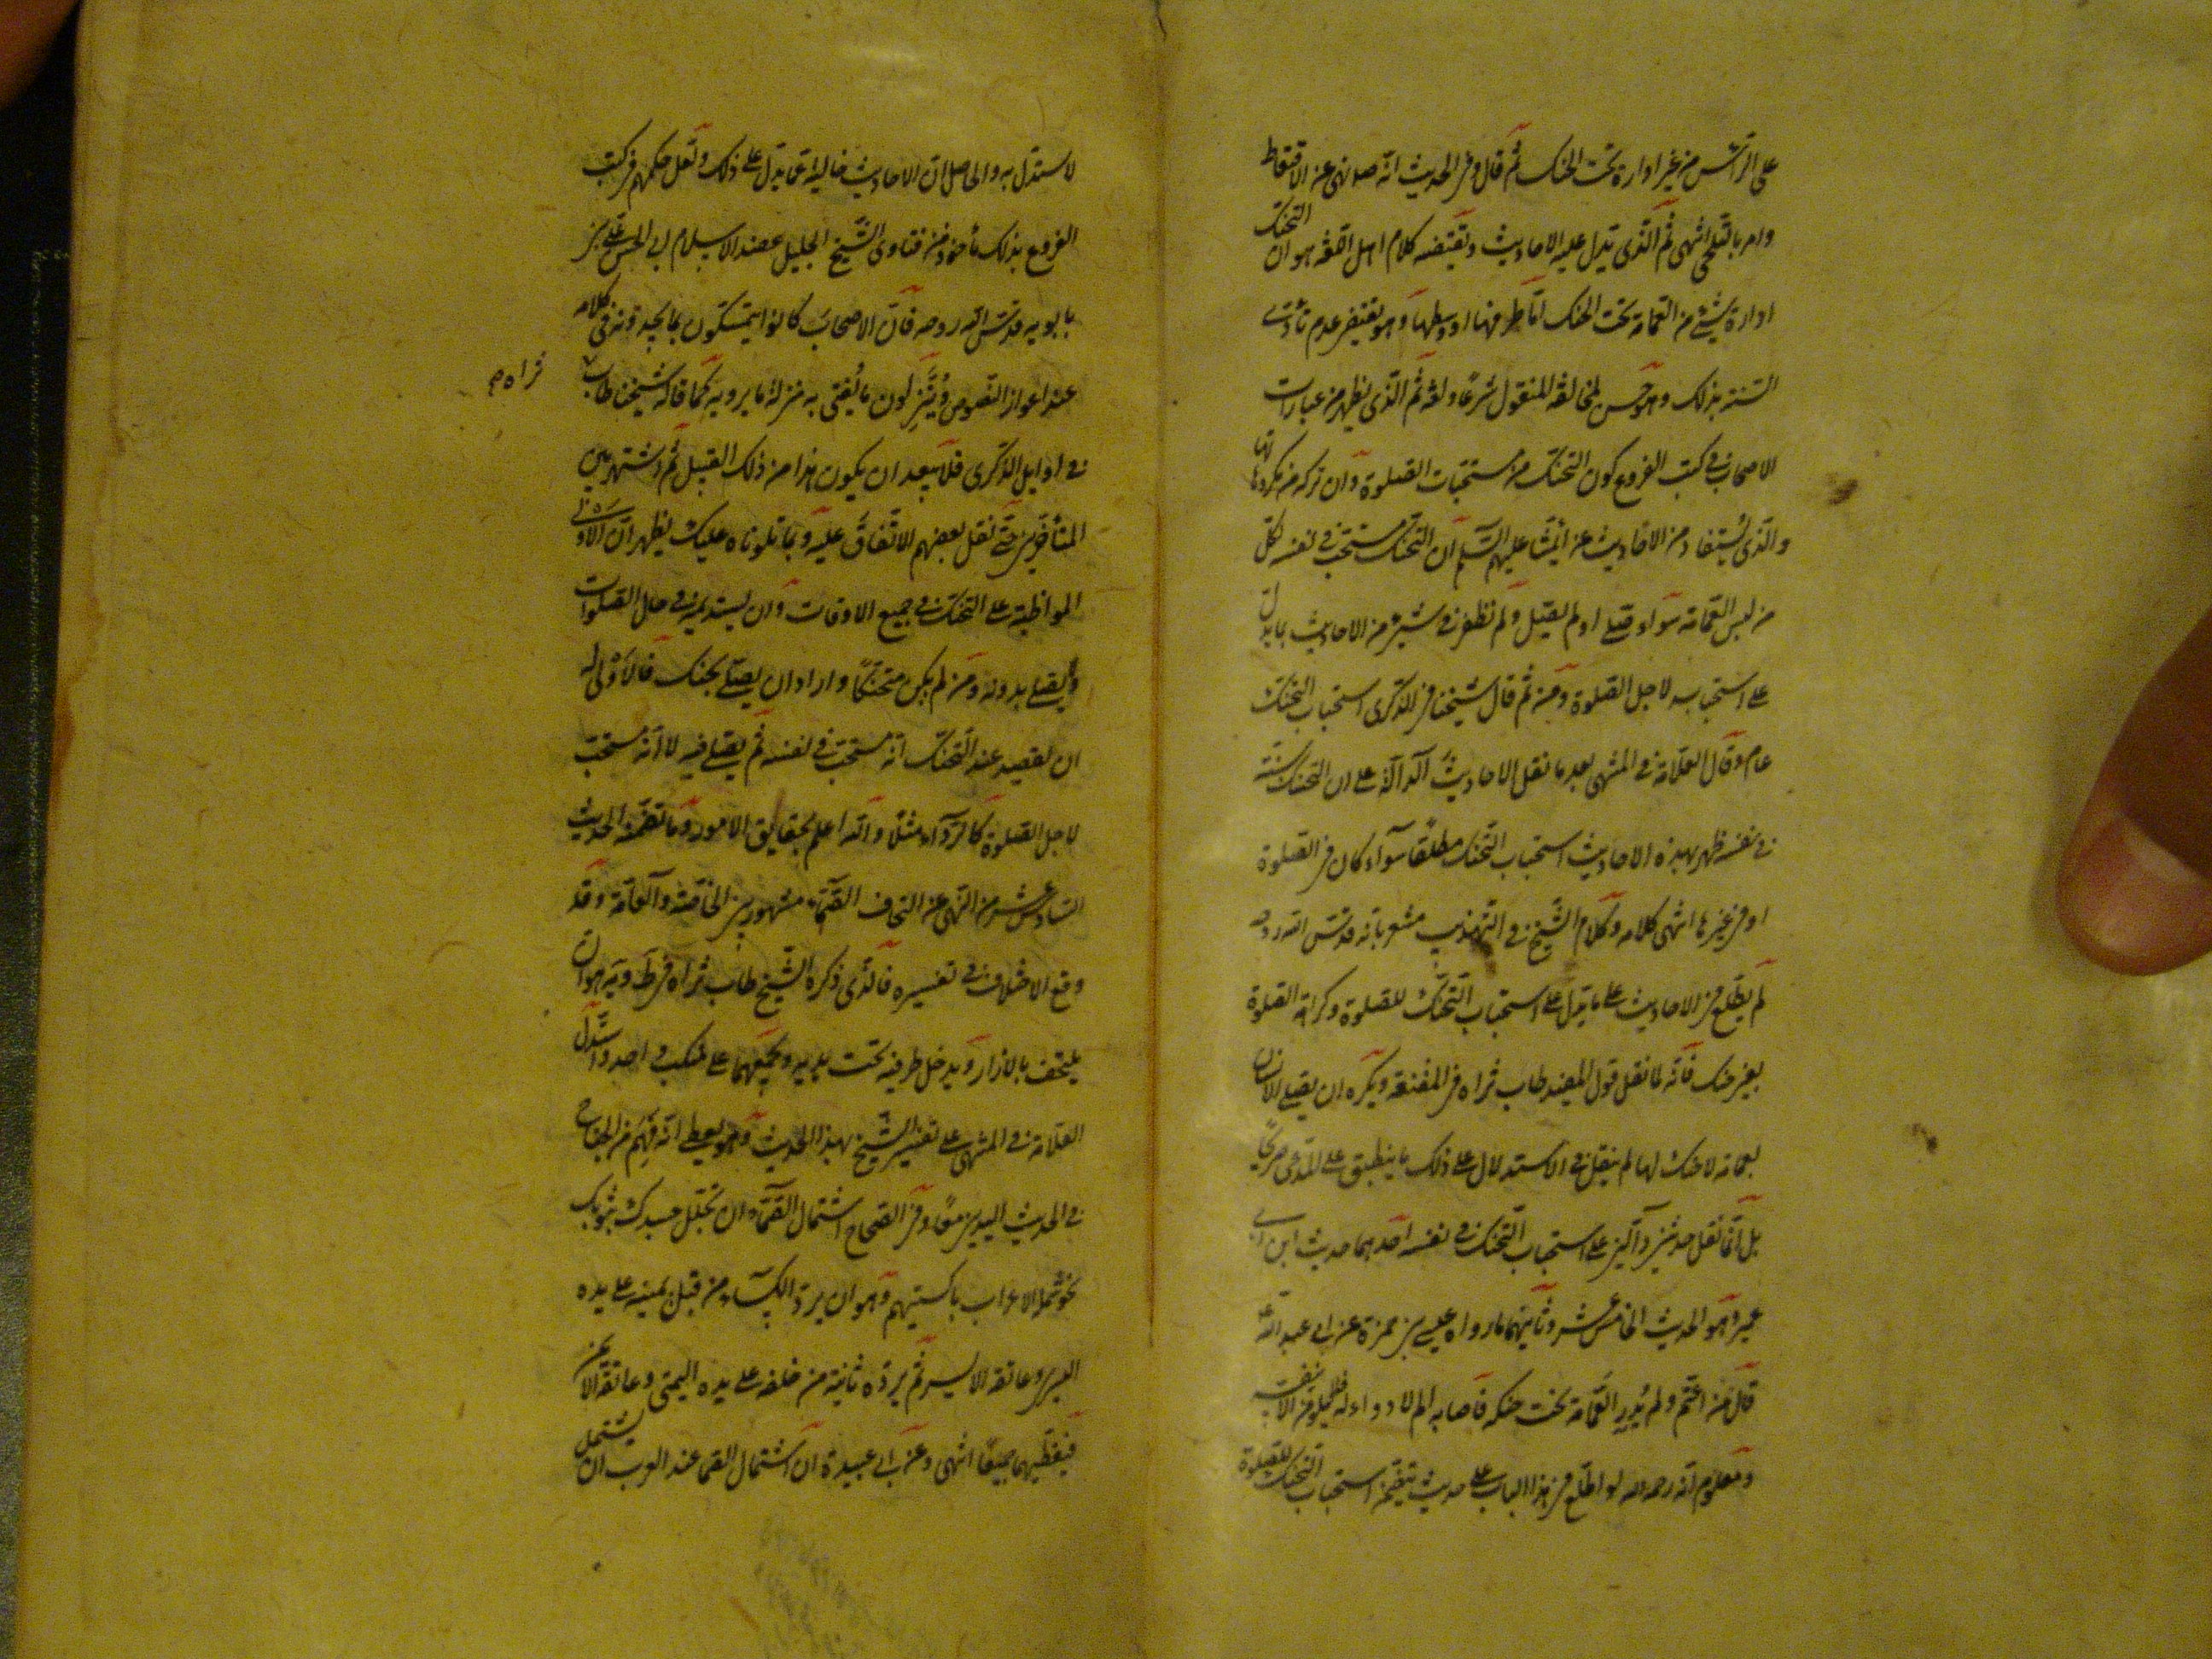 على الرأس من غير ادارة تحت الحنك ثم قال وفي الحديث انه ص نهى عن الاقتعاط
وامر بالتلحي انتهى ثم الذي تدل عليه الاحاديث ويقتضيه كلام اهل اللغة هو ان التحنك
ادارة شيء من العمامة تحت الحنك اما طرفها او وسطها وهو يقتضي عدم تأدي
السنة بذلك وهو حسن لمخالفة المنقول شرعا ولغة ثم الذي يظهر من عبارات
الاصحاب في كتب الفروع كون التحنك من مستحبات الصلوة وان تركه من مكروهاتها
والذي يستفاد من الاحاديث عن ائمتنا عليهم السلام ان التحنك مستحب في نفسه لكل
من لبس العمامة سواء صلى او لم يصل ولم نظفر في شيء من الاحاديث بما يدل
على استحبابه لاجل الصلوة ومن ثم قال شيخنا في الذكرى استحباب التحنك
عام وقال العلامة في المنتهى بعد ما نقل الاحاديث الدالة على ان التحنك سنة
في نفسه ظهر بهذه الاحاديث استحباب التحنك مطلقا سواء كان في الصلوة
او في غيرها انتهى كلامه وكلام الشيخ في التهذيب مشعر بانه قدس الله روحه
لم يطلع في الاحاديث على ما يدل على استحباب التحنك للصلوة وكراهة الصلوة
بغير حنك فانه لما نقل قول المفيد طاب ثراه في المقنعة ويكره ان يصلي الانسان
بعمامة لا حنك لها لم ينقل في الاستدلال على ذلك ما ينطبق على المدعى صريحا
بل انما نقل حديثين دالين على استحباب التحنك في نفسه احدهما حديث ابن ابي
عمير وهو الحديث الخامس عشر وثانيهما ما رواه عيسى بن حمزة عن ابي عبد الله ع
قال من اعتم ولم يدر العمامة تحت حنكه فاصابه الم لا دواء له فلا يلومن الا نفسه
ومعلوم انه رحمه الله لو اطلع في هذا الباب على حديث يتضمن استحباب التحنك للصلوة
لاستدل به والحاصل ان الاحاديث خالية عما يدل على ذلك ولعل حكمهم في كتب
الفروع بذلك مأخوذ من فتاوى الشيخ الجليل عضد الاسلام ابي الحسن علي بن
بابويه قدس الله روحه فان الاصحاب كانوا يتمسكون بما يجدونه في كلامه
عند اعواز النصوص وينزلون ما يفتي به منزلة ما يرويه كما قاله شيخنا طاب
ثراه م
في اوايل الذكرى فلا يبعد ان يكون هذا من ذلك القبيل ثم اشتهر بين
المتأخرين حتى نقل بعضهم الاتفاق عليه وبما تلوناه عليك يظهر ان الاولى
المواظبة على التحنك في جميع الاوقات وان يستديمه في حال الصلوات
ويصلي بدونه ومن لم يكن متحنكا واراد ان يصلي بحنك فالاولى له
ان يقصد عند التحنك انه مستحب في نفسه ثم يصلي فيه لا انه مستحب
لاجل الصلوة كالرداء مثلا والله اعلم بحقايق الامور وما تضمنه الحديث
السادس عشر من النهي عن التحاف الصماء مشهور بين الخاصة والعامة وقد
وقع الاختلاف في تفسيره فالذي ذكره الشيخ طاب ثراه في ط ويه هو ان
يلتحف بالازار ويدخل طرفيه تحت يديه ويجمعهما على منكب واحد واستدل
العلامة في المنتهى على تفسير الشيخ بهذا الحديث وهو يعطي انه فهم من الجناح
في الحديث اليدين معا وفي الصحاح اشتمال الصماء ان تجلل جسدك بثوبك
نحو شملة الاعراب باكسيتهم وهو ان يرد الكساء من قبل يمينه على يده
اليسرى وعاتقه الايسر ثم يرده ثانية من خلفه على يده اليمنى وعاتقه الايمن
فيغطيهما جميعا انتهى وعن ابي عبيدة ان اشتمال الصما عند العرب ان يشتمل